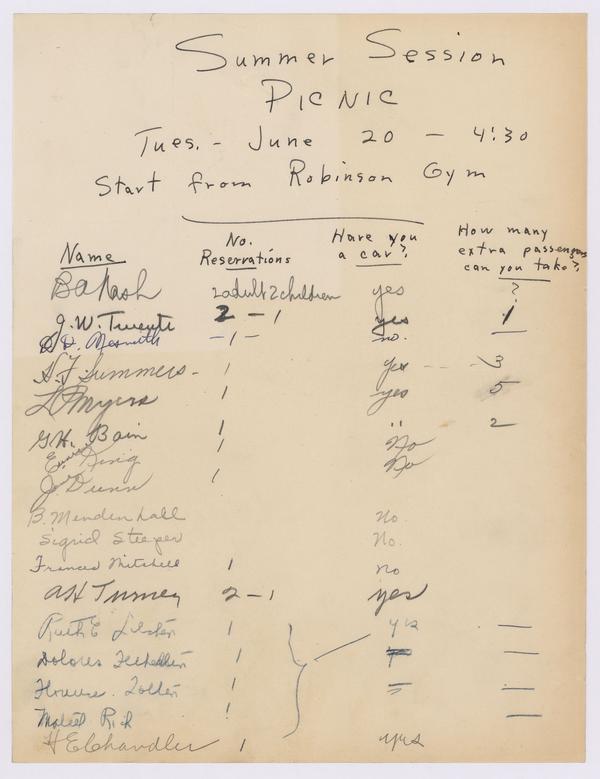 Summer Session
PICNIC
Tues. - June 20 - 4:30
Start from Robinson Gym
Name No. Reservations Have you a car? How many extra passengers can you take?
B A Nash 2 adult 2 children yes ?
J. W. Twente 2 - 1 yes 1
- 1 - no. —
H. F. Summers - 1 yes - - - 3
L Myers 1 yes 5
G. H. Bain 1 " 2
1 No
J Dunn 1 No
B. Mendenhall no.
Sigrid Steeper No.
Frances Mitchell 1 no
A H Turney 2 - 1 yes
Ruth E 1 yes —
Dolores 1 —
1 —
1 —
H E Chandler 1 yes